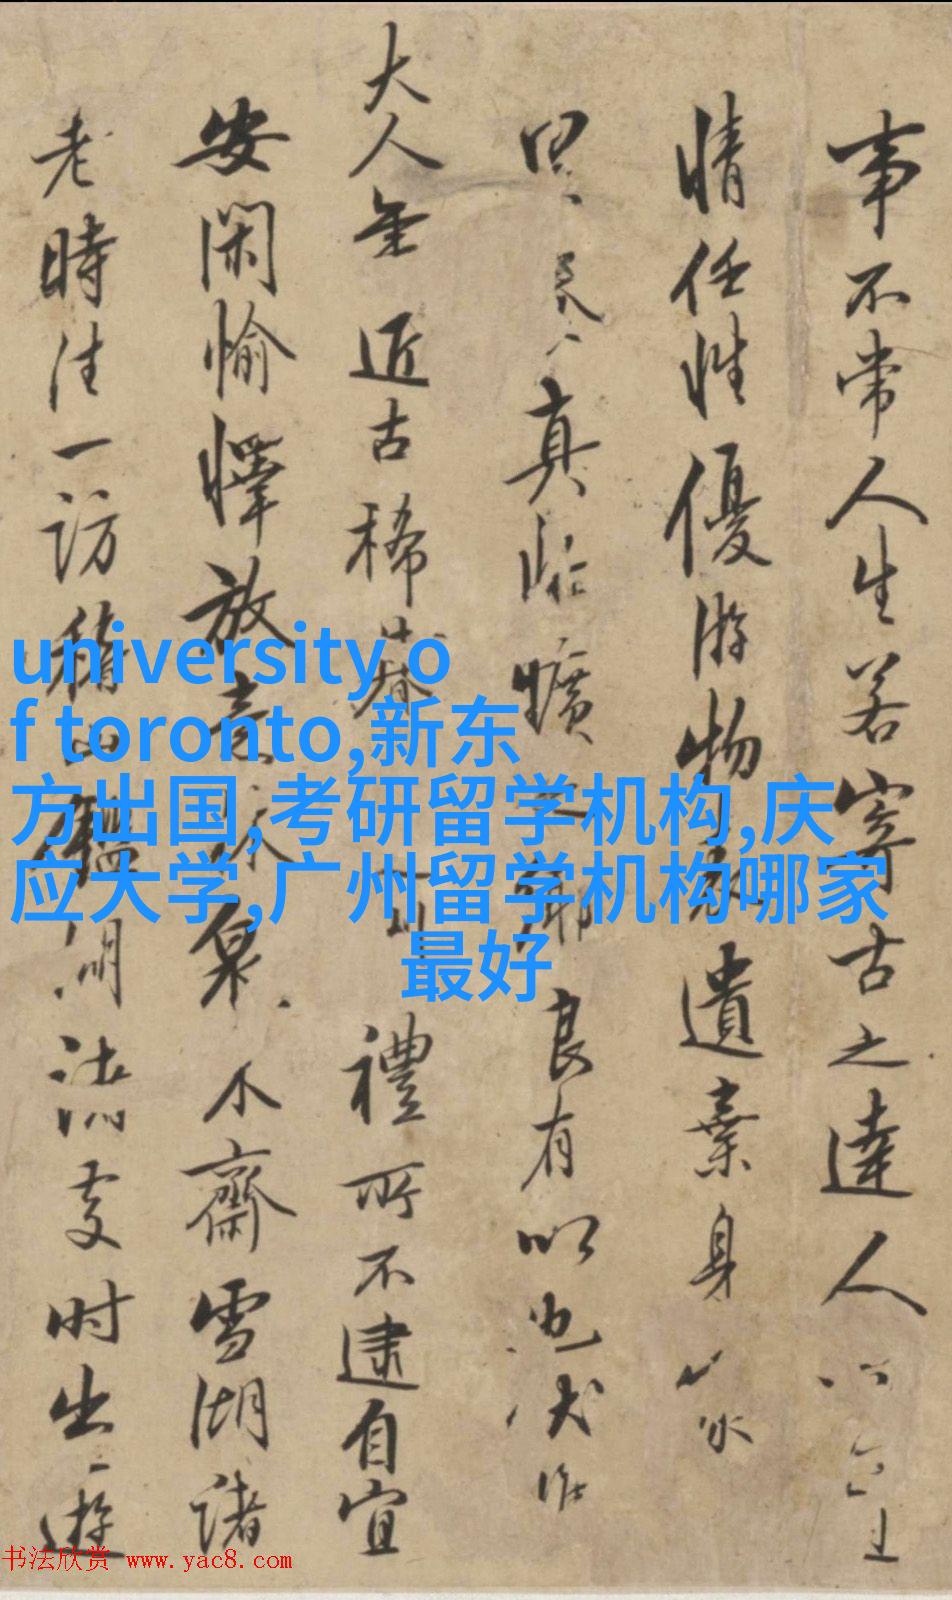 事不常人生若寄古之達人
情任性優游物表遺棄身家
真 曠之鄉良有以也伏惟
大人年近古稀 禮所不逮自宜
安閑愉懌放意林泉木齋雪湖諸
老時往一訪稽山鑑湖諸處時出一遊
university o
f toronto,新东
方出国,考研留学机构,庆
应大学,广州留学机构哪家
最好
书法欣赏 www.yac8.com